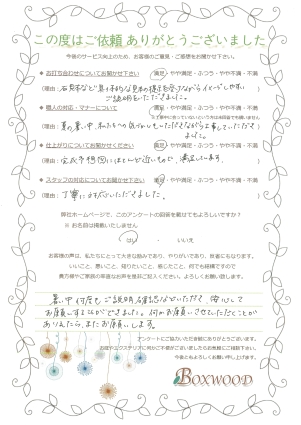 この度はご依頼ありがとうございました
今後のサービス向上のため、お客様のご意見・ご感想をお聞かせ下さい。
◆お打ち合わせについてお聞かせ下さい
満足・やや満足・ふつう・やや不満・不満
(理由:
ご説明をいただきました。
◆職人の対応・マナーについて
満足・やや満足・ふつう・やや不満・不満
(理由:暑い暑い中、私たちへの気づかいもいただきながら工事していただき
ました。
◆仕上がりについてお聞かせください
満足・やや満足・ふつう・やや不満・不満
(理由:完成予想図にほとんど近いもので、満足しています。)
◆スタッフの対応についてお聞かせ下さい
満足・やや満足・ふつう・やや不満・不満
(理由:
丁寧に対応いただきました。)
弊社ホームページで、このアンケートの回答を載せてもよろしいですか?
※お名前は掲載いたしません
はい・いいえ
お客様の声は、私たちにとって大きな励みであり、やりがいであり、財産にもなります。
いいこと、悪いこと、知りたいこと、感じたこと、何でも結構ですので
貴方様やご家族の率直なお声を是非ご記入ください。よろしくお願い致します。
暑い中何度もご説明、確認などいただく、安心して
お願いすることができました。何かお願いさせていただくことが
ありましたら、またお願いします。
アンケートにご協力いただき誠にありがとうございます。
お庭やエクステリアに何かご不便がございましたらお気軽にご相談下さい。
今後ともよろしくお願い申し上げます。
BOXWOOD